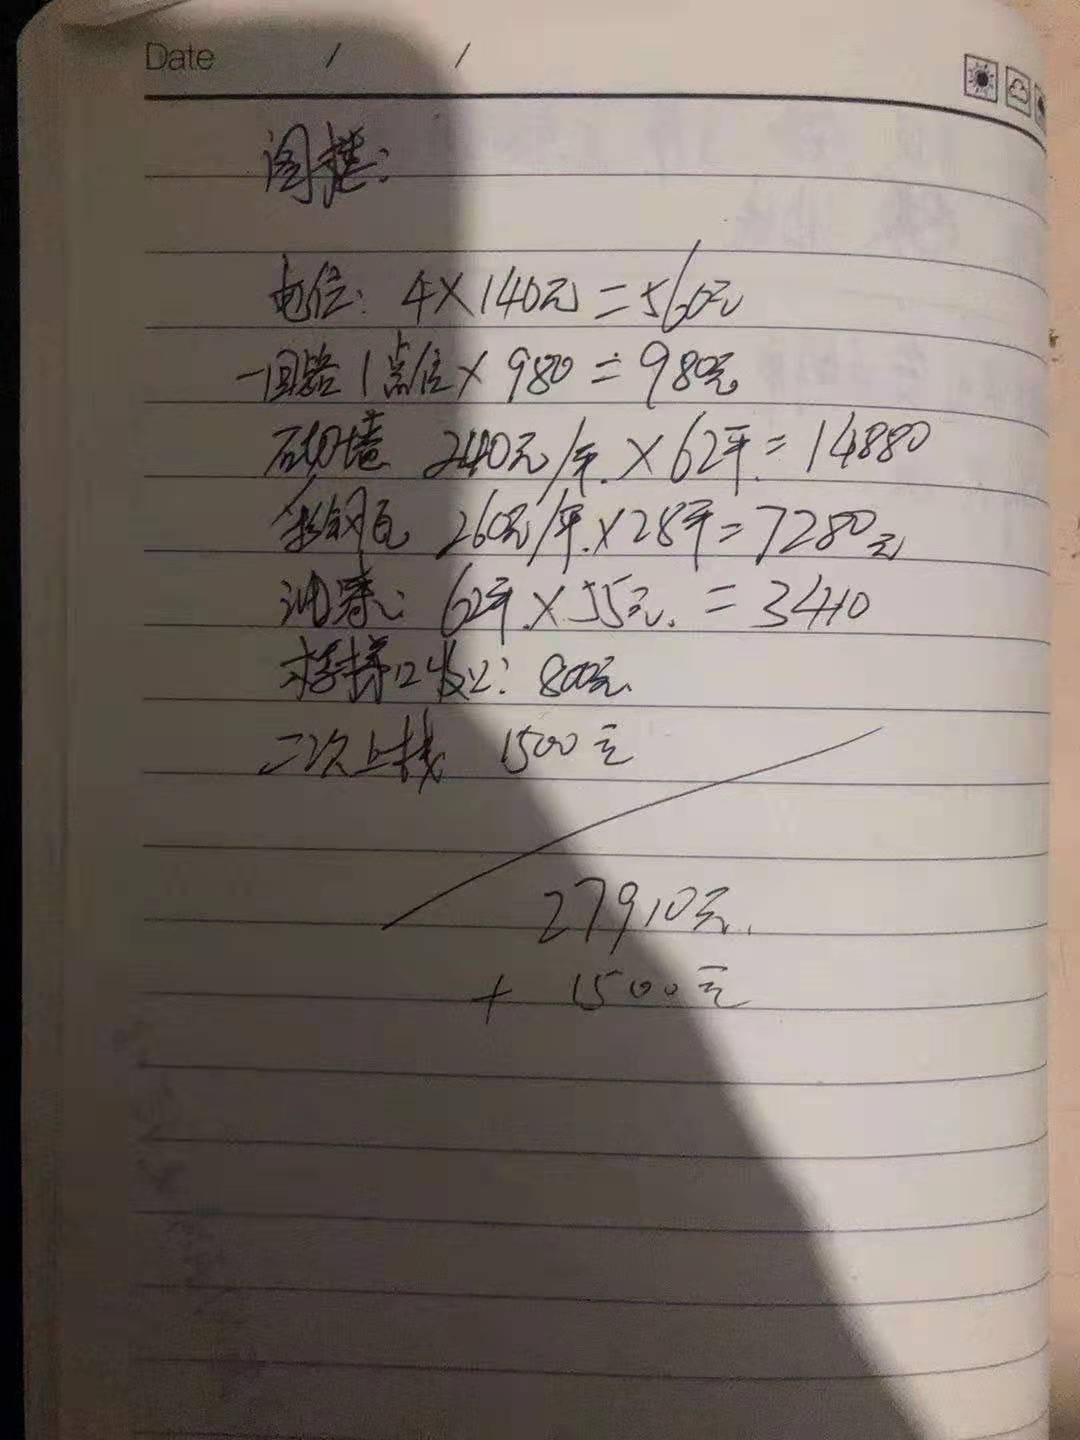 Date / /
阁楼:
电位: 4×140元=560元
一回路1点位×980=980元
砌墙 240元/平.×62平=14880
彩钢瓦 260元/平.×28平=7280元
油漆: 62平×55元.=3410
800元
二次上 1500元
27910元.
+ 1500元